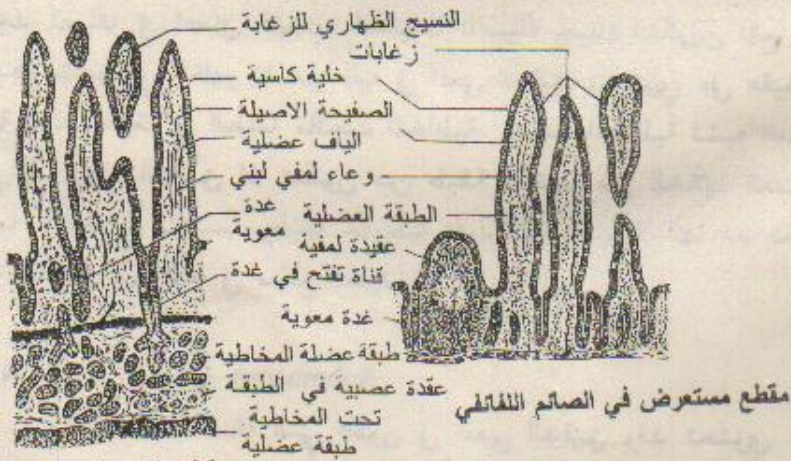 النسيج الظهاري للزغابة
زغابات
خلية كاسية
الصفيحة الاصيلة
الياف عضلية
وعاء لمفي لبني
الطبقة العضلية
غدة
معوية
عقيدة لمفية
قناة تفتح في غدة
غدة معوية
طبقة عضلة المخاطية
عقدة عصبية في الطبقة
تحت المخاطية
طبقة عضلية
مقطع مستعرض في الصائم اللفائفي